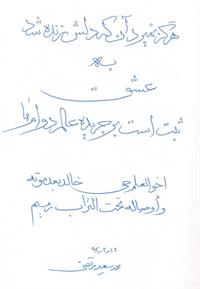 هرگز نمیرد آن که دلش زنده شد
به
عشق
ثبت است بر جریده عالم دوام ما
اخوالعلم حی خالد بعد موته
و أوصاله تحت التراب رمیم
۹۲٫۲٫۱۶